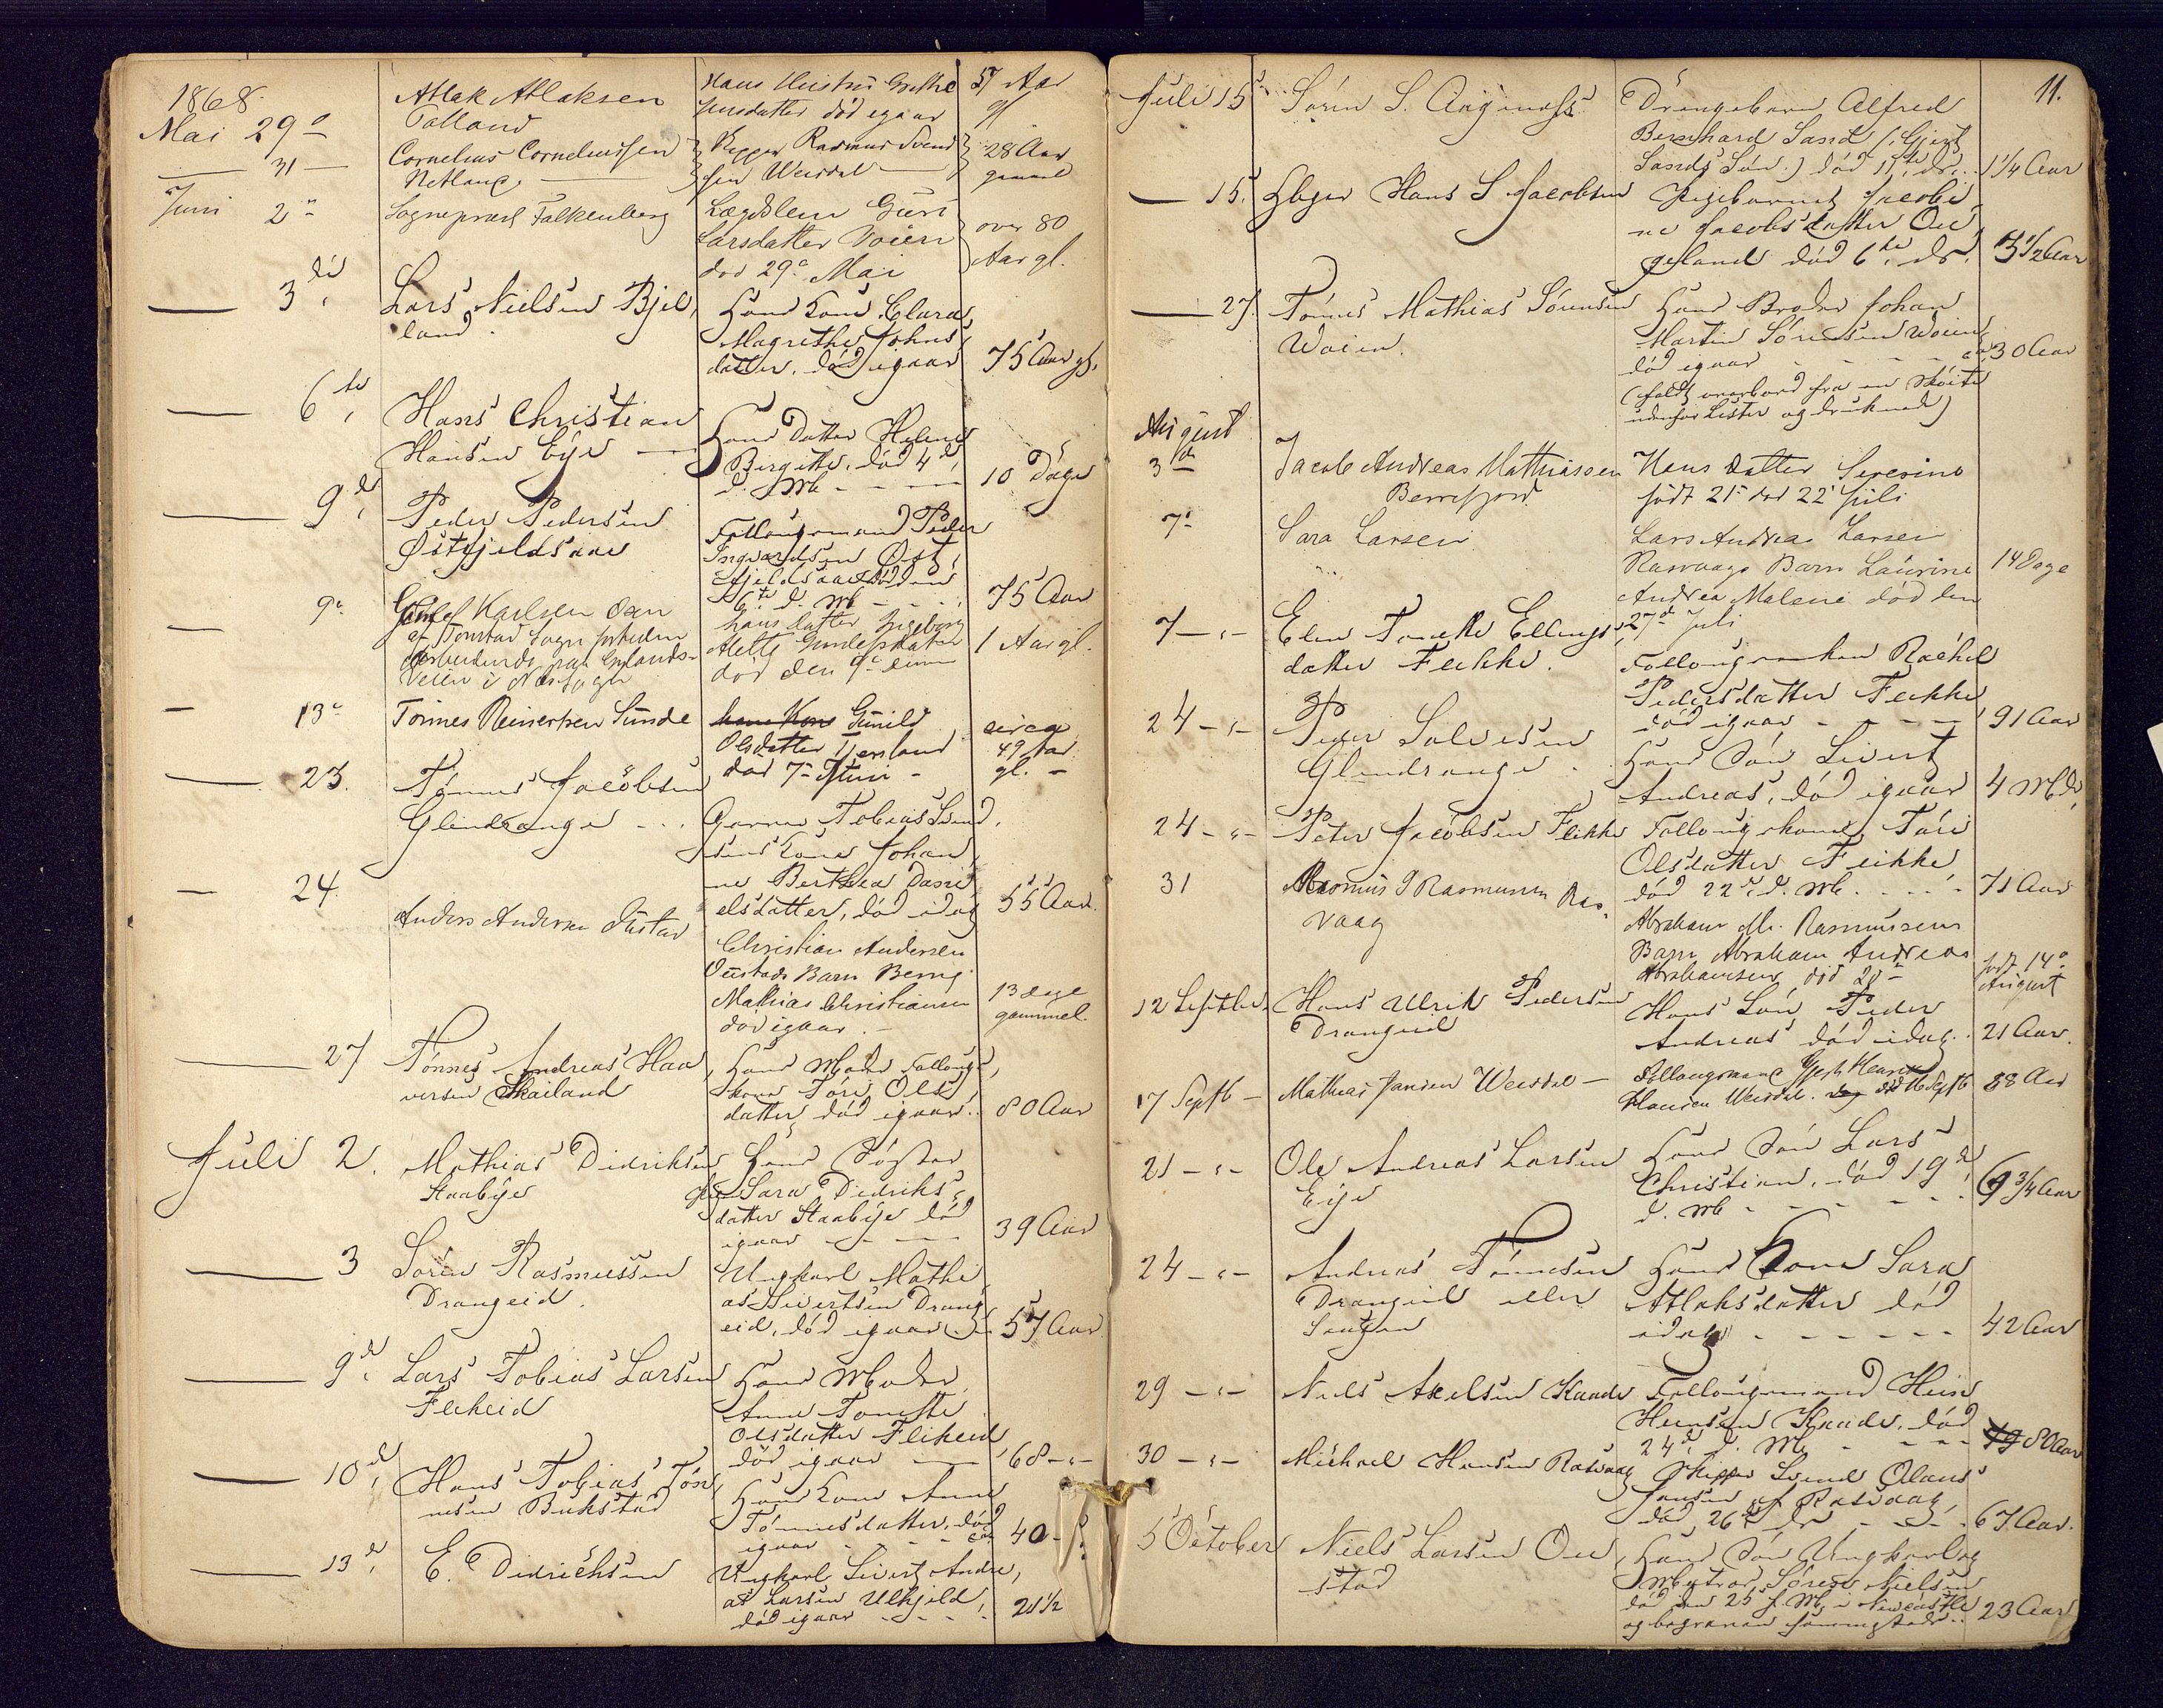 1868.
Mai 29
Atlak Atlaksen
hans Hustru Grethe
57 Aar
Jensdatter død igaar
gl
31
Cornelius Corneliussen
Netland
Rasmus Svend
sen Weisdal
28 Aar
gammel
Juni 2
Sognepræst Falkenberg
Lægdslem Guri
Larsdatter Voien
død 29 Mai
over 80
Aar gl.
3die
Lars Nielsen Bjel,
land.
Hans Kone Clara
Magrethe Johns
datter, død igaar
75 Aar gl.
6te
Hans Christian
Hansen Eye
Hans Datter Helene
Bergitte, død 4de
d. Mt
10 Dage
9de
Peder Pedersen
Østfjeldsaae
Follougsmand Peder
Ingvardsen Øst,
fjeldsaae død den
6te d. Mt
75 Aar
9
Karlsen
af Tonstad Sogn
veien i Næs Sogn
hans datter Ingeborg
død den 9
1 Aar gl.
13
Tønnes Reinertsen Sunde
hans Kone Gunild
Olsdatter
død 7 Juni
circa
49 Aar
gl.
23.
Tønnes Jacobsen
Glendrange
Garver Tobias Svend,
sens Kone Johan,
ne Berthea Dani
elsdatter, død idag
55 Aar.
24.
Anders Andersen
Christian Andersen
Barn Bernt
Mathias Christiansen
død igaar.
13 dage
gammel.
27
Tønnes Andreas Haa,
versen Skailand
Hans Moder Follougs,
kone Tøri Ols
datter død igaar.
80 Aar
Juli 2.
Mathias Didriksen
Staabye
Hans Søster
Sara Didriks
datter Staabye død
igaar
39 Aar
3
Søren Rasmussen
Drangeid.
Ungkarl Mathi
as Sivertsen Drang
eid, død igaar
57 Aar
9de
Lars Tobias Larsen
Flikeid
Hans Moder
Anne Tomette
Olsdatter Flikeid
død igaar
68
10de
Hans Tobias Tøn,
nesen Bukstad
Hans Kone Anne
Tønnesdatter, død
igaar
ca 40
13de
E. Didrichsen
Ungkarl Sivert Andre,
as Larsen Ulhjeld
død igaar
21 1/2
11.
Juli 15
Søren S.
Drengebarn Alfred
Bernhard Sand (Gjert
Sands Søn.) død 11te ds.
1 1/4 Aar
15.
Hans S Jacobsen
Pigebarnet Jacobi
ne Jacobsdatter Ou
geland død 6te ds.
3 1/2 Aar
27.
Tønnes Mathias Sørensen
Woien.
Hans Broder Johan
Martin Sørensen Woien
død igaar
ca 30 Aar
(faldt overbord fra en Skøite
udenfor Lister og druknede)
August
3die
Jacob Andreas Mathiassen
Berrefjord
Hans datter Severine
født 21 død 22 Juli
7
Sara Larsen
Lars Andreas Larsen
Rasvaags Barn Laurine
Andrea Malene død den
27de Juli
14 Dage
7
Elen Tomette Ellings,
datter Fekke.
Follougsenken Rachel
Pedersdatter Fekke
død igaar
91 Aar
24
Peder Salvesen
Glendrange.
Hans Søn Sivert
Andreas, død igaar
4 Mdr
24
Peter Jacobsen Flikke
Follougskone Tøri
Olsdatter Flikke
død 22de d. Mt.
71 Aar
31
Rasmus J Rasmussen Ras,
vaag
Abraham M. Rasmussens
Barn Abraham Andreas
Abrahamsen, død 20
født 14
August
12 Septbr.
Hans Ulrik Pedersen
Drangeid
Hans Søn Peder
Andreas død idag.
21 Aar.
17 Septb
Mathias Jansen Weisdal
Follougsmand
Hansen Weisdal. død 16 Septb
88 Aar
21
Ole Andreas Larsen
Eye
Hans Søn Lars
Christian, død 19de
d. Mt
6 3/4 Aar
24
Andreas Tønnesen
Drangeid eller
Hans Kone Sara
Atlaksdatter død
idag
42 Aar
29
Niels Axelsen Kaade
Follougsmand
Kaade, død
24de d. Mt
80 Aar
30
Michael Hansen Rasvaag
Skipper Svend Olaus
Jansen af Rasvaag,
død 26de ds
67 Aar.
5 October
Niels Larsen Ou,
stad
Hans Søn Ungkarl og
Matros Søren Nielsen
død den 25 f. Mt i Newcastle
og begraven sammesteds
23 Aar